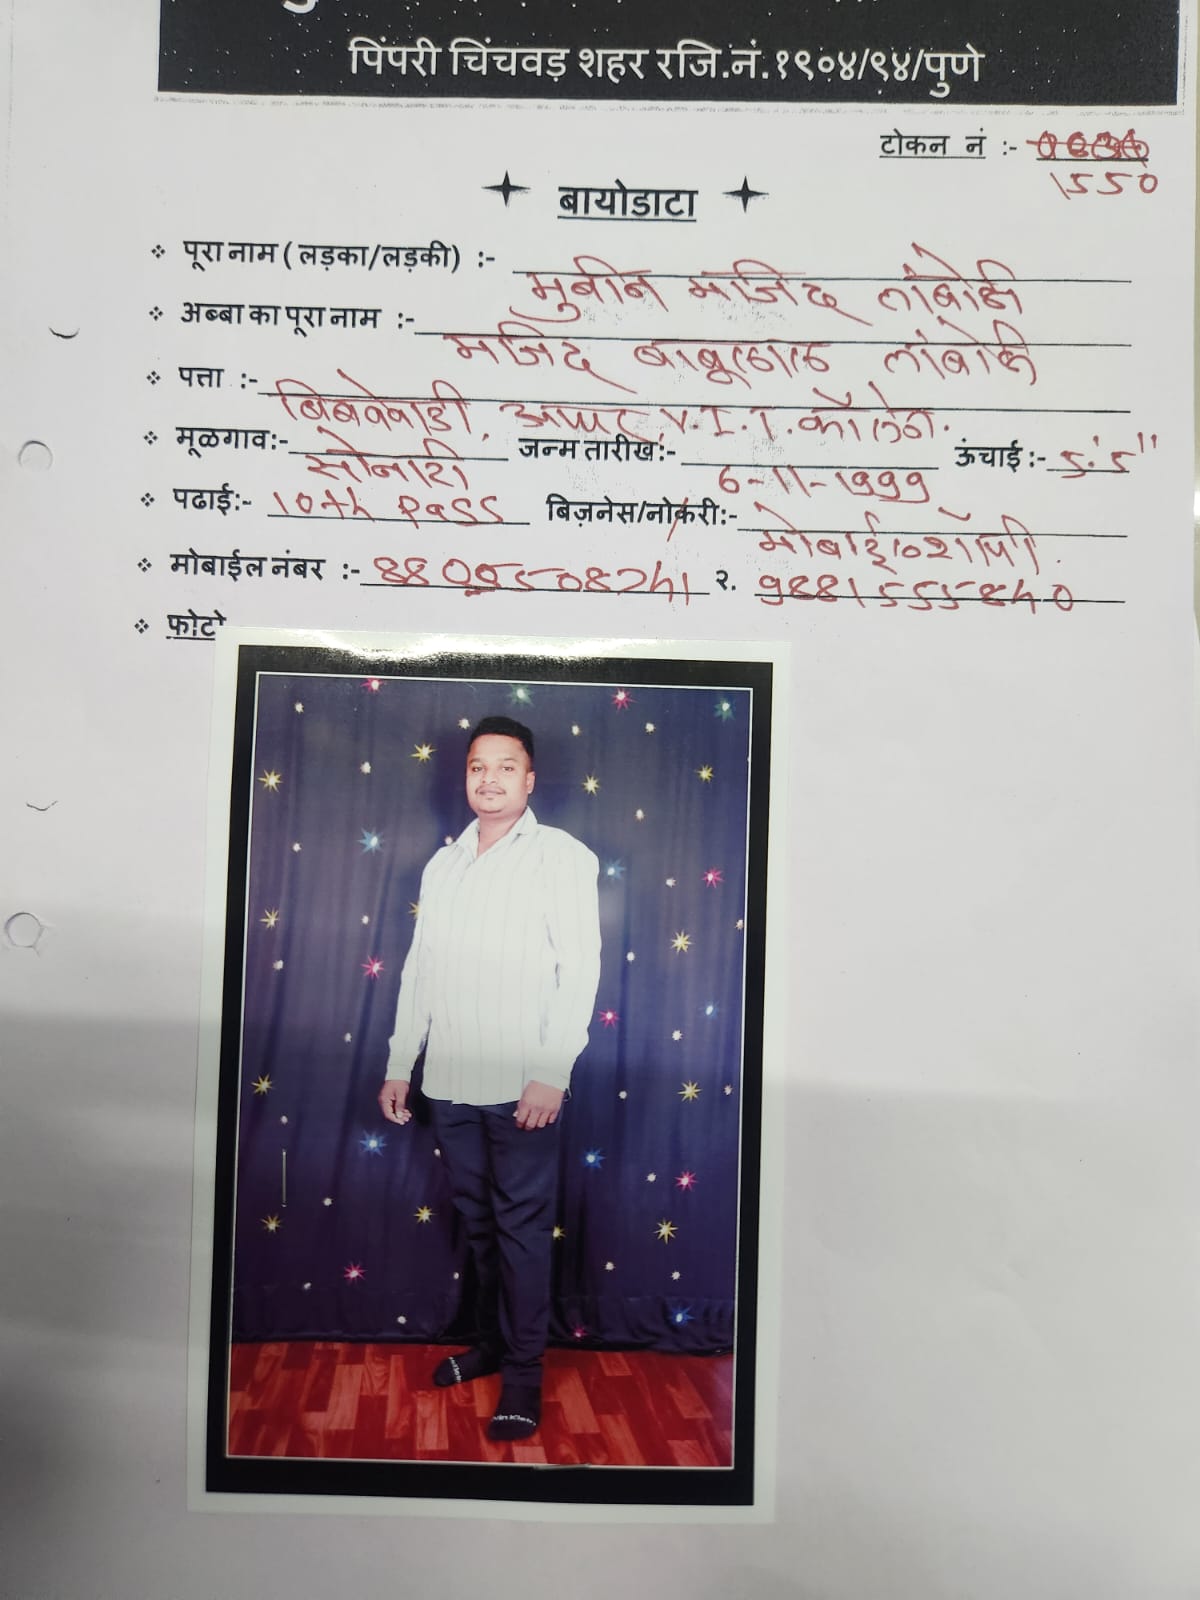 पिंपरी चिंचवड़ शहर रजि.नं.१९०४/९४/पुणे
टोकन नं :-
1550
बायोडाटा
पूरा नाम ( लड़का/लड़की) :- मुबीन मजिद तांबोळी
अब्बा का पूरा नाम :- मजिद बाबूलाल तांबोळी
पत्ता :- बिबवेवाडी, अप्पर, V.I.T. कॉलेज.
मूळगाव:- सोनारी जन्म तारीख:- 6-11-1999 ऊंचाई :- 5.'5''
पढाई:- 10th Pass बिज़नेस/नोकरी:- मोबाईल शॉपी.
मोबाईल नंबर :- 8805508241 २. 9881555840
फोटो